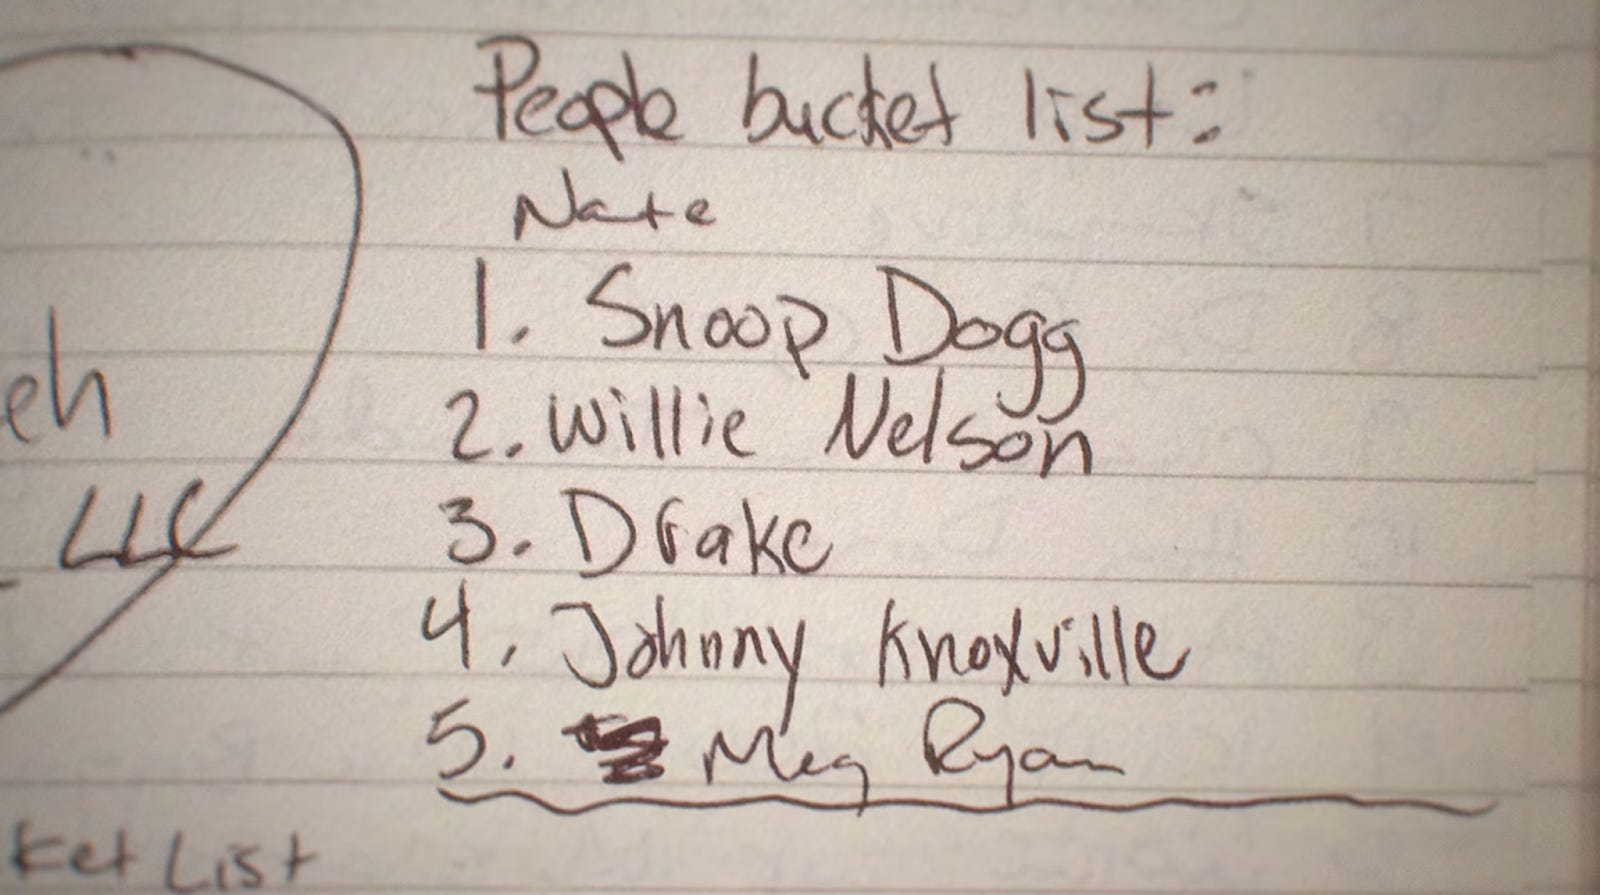 People bucket list:
Nate
1. Snoop Dogg
2. Willie Nelson
3. Drake
4. Johnny Knoxville
5. Meg Ryan
eh
LLC
ket List